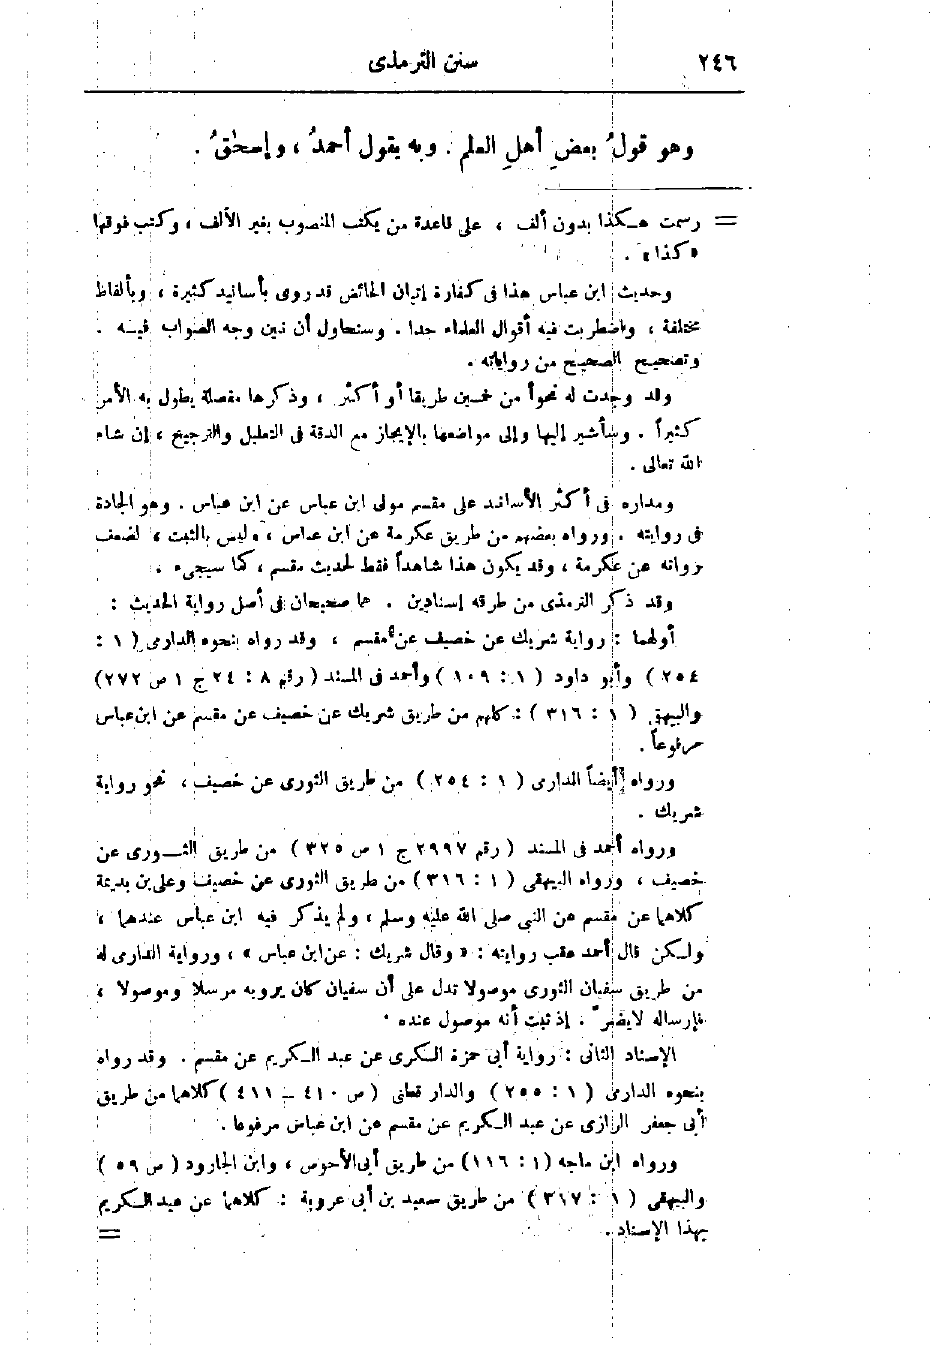 ٢٤٦
سنن الترمذى
وهو قولُ بعضِ أهلِ العلم . وبه يقول أحمدُ ، وإسحٰقُ .
= رسمت هـكذا بدون ألف ، على قاعدة من يكتب المنصوب بغير الألف ، وكتب فوقها
«كذا» .
وحديث ابن عباس هذا فى كفارة إتيان الحائض قد روى بأسانيد كثيرة ، وبألفاظ
مختلفة ، واضطربت فيه أقوال العلماء جدا . وسنحاول أن نبين وجه الصواب فيـه .
وتصحيح الصحيح من رواياته .
وقد وجدت له نحواً من خمسين طريقا أو أكثر ، وذكرها مفصلة يطول به الأمر
كثيراً . وسأشير إليها وإلى مواضعها بالإيجاز مع الدقة فى التعليل والترجيح ، إن شاء
الله تعالى .
ومداره فى أكثر الأسانيد على مقسم مولى ابن عباس عن ابن عباس . وهو الجادة
فى روايته . ورواه بعضهم من طريق عكرمة عن ابن عباس ، وليس بالثبت ، لضعف
رواته عن عكرمة ، وقد يكون هذا شاهداً فقط لحديث مقسم ، كما سيجىء .
وقد ذكر الترمذى من طرقه إسنادين . هما صحيحان فى أصل رواية الحديث :
أولهما : رواية شريك عن خصيف عن مقسم ، وقد رواه بنحوه الدارمى ( ١ :
٢٥٤ ) وأبو داود ( ١ : ١٠٩ ) وأحمد فى المسند ( رقم ٢٤٥٨ ج ١ ص ٢٧٢)
والبيهقى ( ١ : ٣١٦ ) : كلهم من طريق شريك عن خصيف عن مقسم عن ابن عباس
مرفوعاً .
ورواه أيضاً الدارمى ( ١ : ٢٥٤ ) من طريق الثورى عن خصيف ، نحو رواية
شريك .
ورواه أحمد فى المسند ( رقم ٢٩٩٧ ج ١ ص ٣٢٥ ) من طريق الثـورى عن
خصيف ، ورواه البيهقى ( ١ : ٣١٦ ) من طريق الثورى عن خصيف وعلى بن بذيمة
كلاهما عن مقسم عن النبى صلى الله عليه وسلم ، ولم يذكر فيه ابن عباس عندهما ،
ولـكن قال أحمد عقب روايته : « وقال شريك : عن ابن عباس » ، ورواية الدارمى له
من طريق سفيان الثورى موصولا تدل على أن سفيان كان يرويه مرسلا وموصولا ،
فإرساله لايضر . إذ ثبت أنه موصول عنده .
الإسناد الثانى : رواية أبى حمزة السكرى عن عبد الـكريم عن مقسم . وقد رواه
بنحوه الدارمى ( ١ : ٢٥٥ ) والدار قطنى ( ص ٤١٠ ـ ٤١١ ) كلاهما من طريق
أبى جعفر الرازى عن عبد الـكريم عن مقسم عن ابن عباس مرفوعا .
ورواه ابن ماجه (١ : ١١٦) من طريق أبى الأحوص ، وابن الجارود ( ص ٥٩ )
والبيهقى ( ١ : ٣١٧ ) من طريق سعيد بن أبى عروبة : كلاهما عن عبد الـكريم
بهذا الإسناد .
=